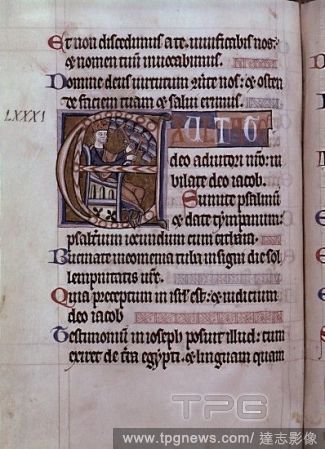 Et non discedimus a te. vivificabis nos:
& nomen tuum invocabimus.
Domine deus virtutum 9vte nos: & osten
te faciem tuam & salvi erimus.
LXXXI
E UTO
deo adiutori nro: iu
bilate deo iacob.
Sumite psalmu
& date tympanum:
psalterium iocundum cum cithara.
Bucinate in neomenia tuba: in signi die sol
lempnitatis vre.
Quia preceptum in isrl est: & iudicium
deo iacob
Testimonium in ioseph posuit illud: cum
exiret de tra egypti. & linguam quam
TPG
www.tpgnews.com/達志影像